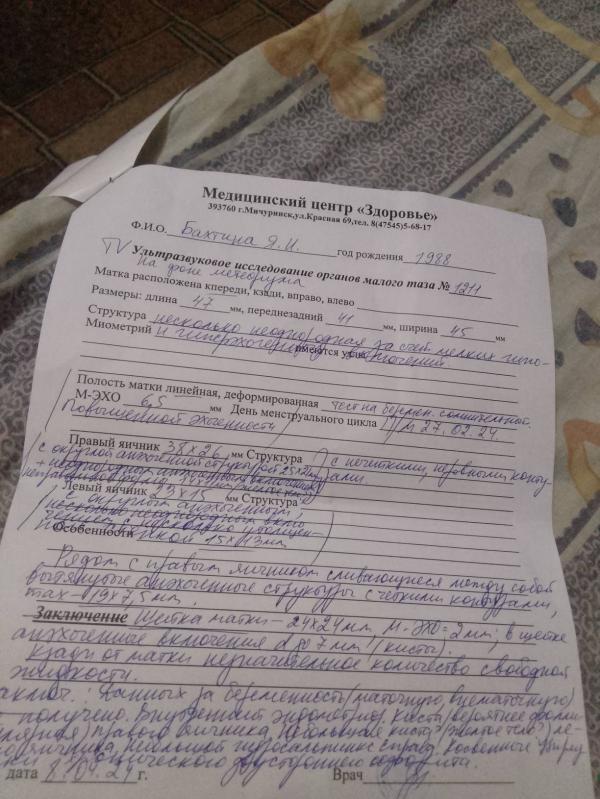 Медицинский центр «Здоровье»
393760 г.Мичуринск,ул.Красная 69,тел. 8(47545)5-68-17
Ф.И.О. Бахтина Я.И. год рождения 1988
TV Ультразвуковое исследование органов малого таза № 1211
на фоне метеоризма
Матка расположена кпереди, кзади, вправо, влево
Размеры: длина 47 мм, переднезадний 41 мм, ширина 45 мм
Структура несколько неоднородная за счет мелких гипо-
Миометрий и гиперэхогенных включений имеются узлы
Полость матки линейная, деформированная Тест на беремен. сомнительно
М-ЭХО 6,5 мм День менструального цикла П/М 27.02.24
Повышенной эхогенности
Правый яичник 38х26 мм Структура с нечеткими, неровными конту-
с округлой анэхогенной структурой рами
+ неоднородным включением
Левый яичник х15 мм Структура
с округлым анэхогенным,
несколько неоднородным вклю
чением с несколько утолщен-
Особенности ной 15х13мм
Рядом с правым яичником сливающиеся между собой
вытянутые анэхогенные структуры с четкими контурами,
max - 19х7,5 мм.
Заключение Шейка матки - 24х24мм, М-ЭХО=2мм; в шейке
анэхогенные включения d до 7мм (кисты).
Кзади от матки незначительное количество свободной
жидкости.
Данных за беременность (маточную, внематочную)
получено. Внутренний эндометриоз. Киста (вероятнее
правого яичника. Небольшая киста (желтое тело) ле-
яичника, небольшой гидросальпинкс справа. Косвенные
хронического двустороннего оофорита.
дата 8.04.24 г. Врач